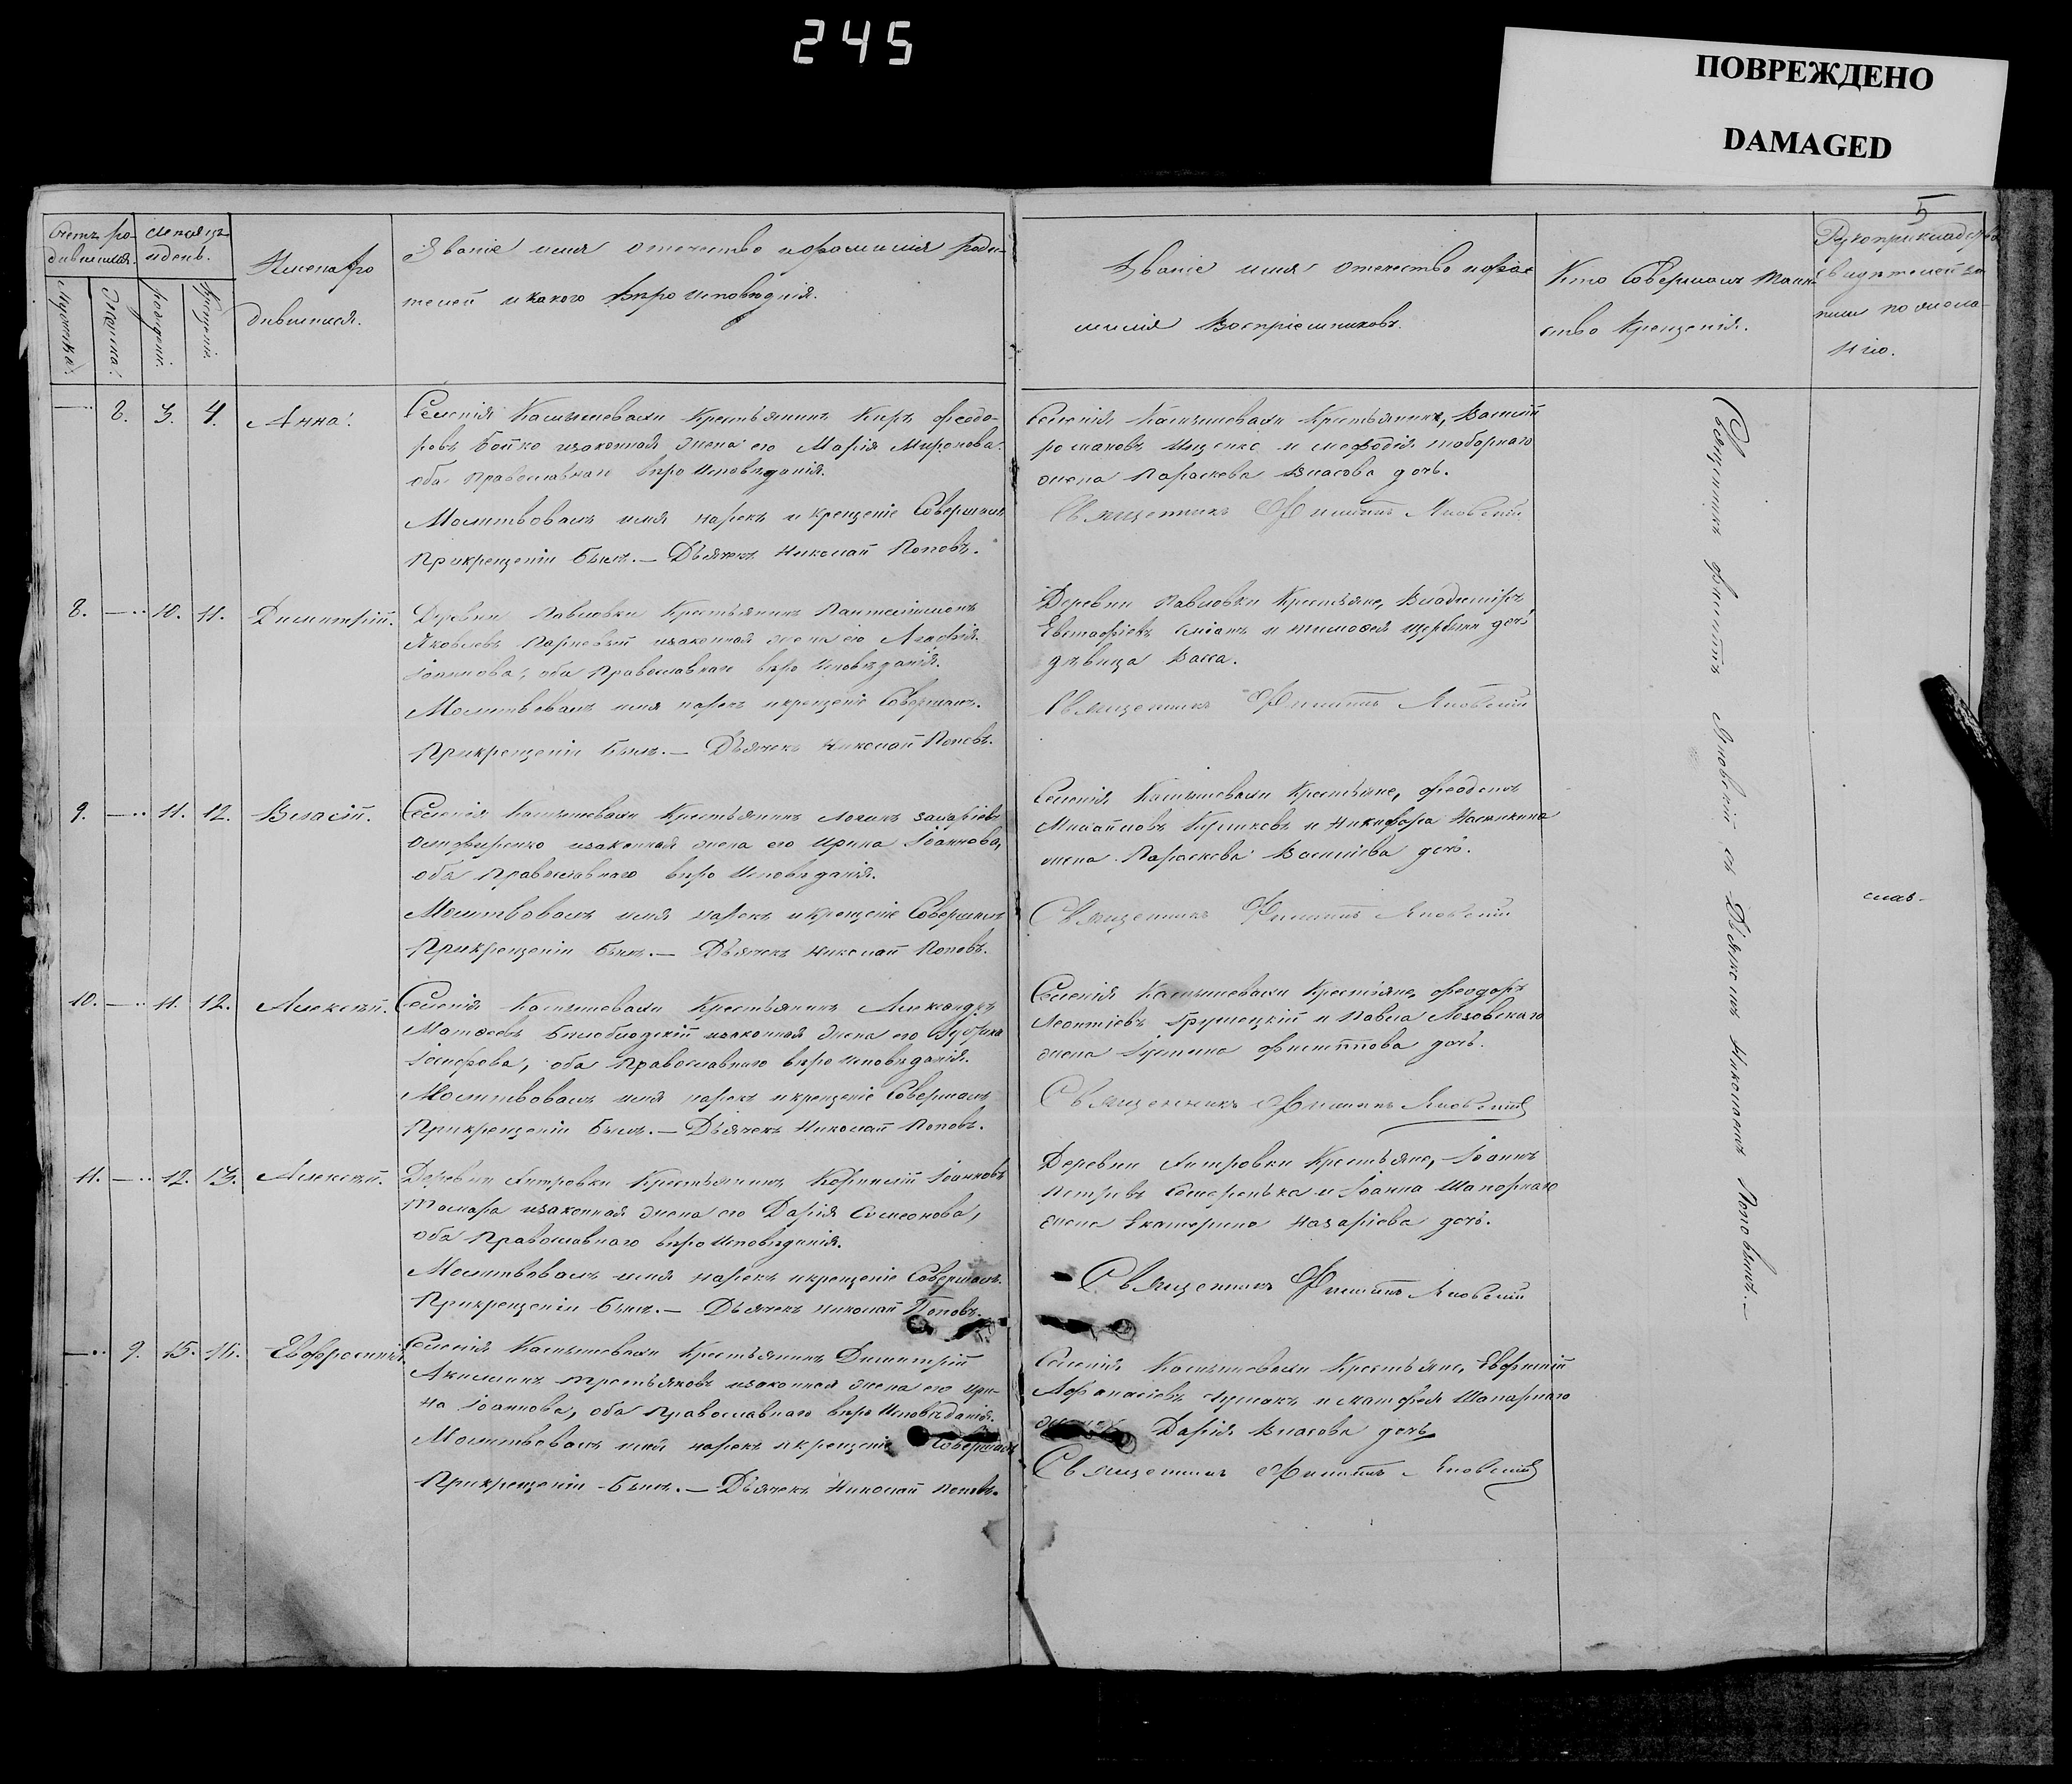 245
ПОВРЕЖДЕНО
DAMAGED
5
Счетъ ро-
дившихся.
месяцъ
и день.
Мужеска.
Женска.
рожденія.
Крещенія.
Имена ро
дившихся.
Званіе имя отечество и фамилія роди-
телей и какого вѣроисповѣднія.
Званіе имя отечество и фа-
милія Воспріемниковъ.
Кто Совершалъ таин-
ство Крещенія.
Рукоприкладство
свидѣтелей за
писи по жела-
нію.
2. 3. 4. Анна.
Селенія Камышевахи Крестьянинъ Киръ Феодо-
ровъ Бойко изаконная жена его Марія Миронова
оба православнаго вѣроисповѣданія.
Молитвовалъ имя нарекъ и крещеніе Совершалъ
При крещеніи былъ. — Дьячекъ Николай Поповъ.
Селенія Камышевахи Крестьянинъ, Василій
романовъ Ищенко и мефодія таборнаго
жена Параскева Власова дочь.
Священникъ Филиппъ Яновскій
8. — 10. 11. Димитрій.
Деревни Павловки Крестьянинъ Пантелиимонъ
Яковлевъ изаконная жена его Агафія
Іоаннова, оба Православнаго вѣроисповѣданія.
Молитвовалъ имя нарекъ и крещеніе Совершалъ.
При крещеніи былъ. — Дьячекъ Николай Поповъ.
Деревни Павловки Крестьяне, Владиміръ
Евстафіевъ и тимофея щербины дочь
дѣвица Васса.
Священникъ Филиппъ Яновскій
9. — 11. 12. Власій.
Селенія Камышевахи Крестьянинъ Логинъ захаріевъ
изаконная жена его Ирина Іоаннова,
оба Православнаго вѣроисповѣданія.
Молитвовалъ имя нарекъ и крещеніе Совершалъ
При крещеніи былъ. — Дьячекъ Николай Поповъ.
Селенія Камышевахи Крестьяне,
Михаиловъ и Никифора
жена Параскева Василіева дочь.
Священникъ Филиппъ Яновскій
10. — 11. 12. Алексѣй.
Селенія Камышевахи Крестьянинъ Александръ
Матфеевъ изаконная жена его
Іосифова, оба Православнаго вѣроисповѣданія.
Молитвовалъ имя нарекъ и крещеніе Совершалъ
При крещеніи былъ. — Дьячекъ Николай Поповъ.
Селенія Камышевахи Крестьяне, Феодоръ
Леонтіевъ Грушецкій и Павла Лозовскаго
жена Филиппова дочь.
Священникъ Филиппъ Яновскій
11. — 12. 13. Алексѣй.
Деревни Петровки Крестьянинъ Корнилій Іоанновъ
Тамара изаконная жена его Дарія Симеонова,
оба Православнаго вѣроисповѣданія.
Молитвовалъ имя нарекъ и крещеніе Совершалъ.
При крещеніи былъ. — Дьячекъ Николай Поповъ.
Деревни Петровки Крестьяне, Іоаннъ
Петровъ и Іоанна Шапорнаго
жена Екатерина Назаріева дочь.
Священникъ Филиппъ Яновскій
— 9. 15. 16. Евфросинія.
Селенія Камышевахи Крестьянинъ Димитрій
Акилинъ третьяковъ изаконная жена его Ири-
на Іоаннова, оба Православнаго вѣроисповѣданія.
Молитвовалъ имя нарекъ и крещеніе Совершалъ
При крещеніи былъ. — Дьячекъ Николай Поповъ.
Селенія Камышевахи Крестьяне, Евфимій
Афанасіевъ чумакъ и матфея Шапарнаго
жена Дарія Власова дочь
Священникъ Филиппъ Яновскій
Священникъ Филиппъ Яновскій съ Дьячкомъ Николаемъ Поповымъ. —